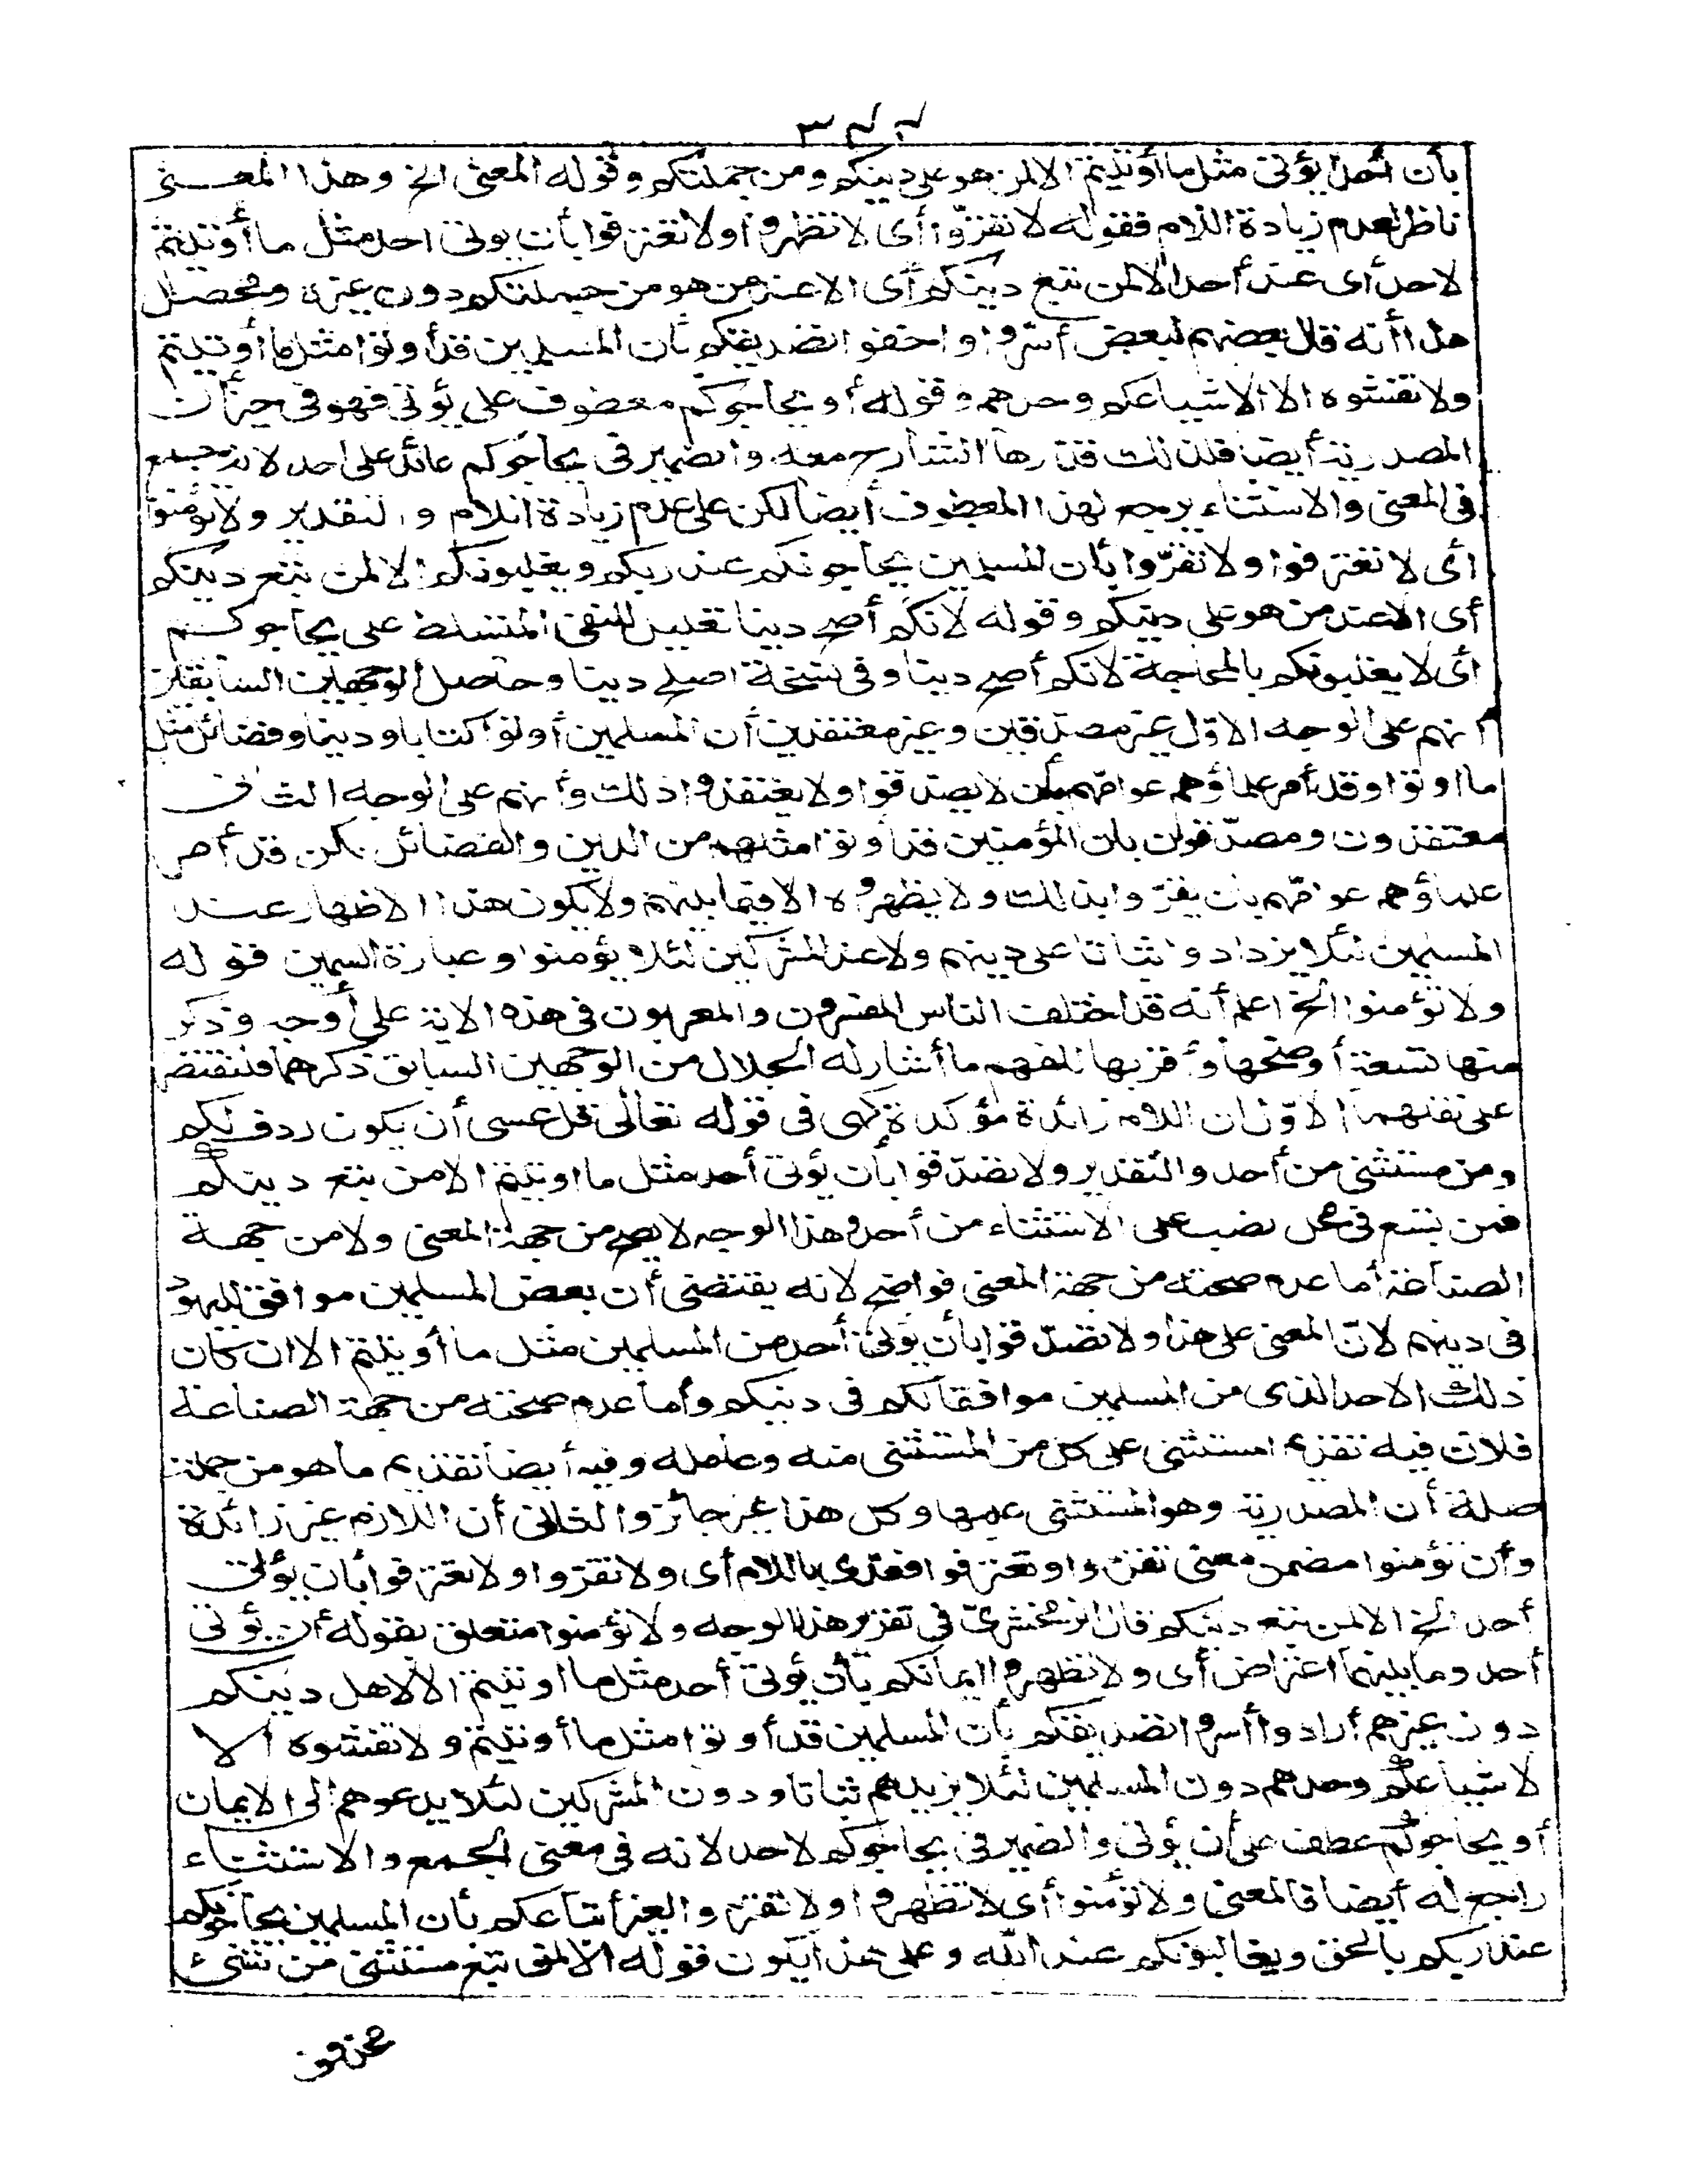 بأن أحدا يؤتى مثل ما أوتيتم الا لمن هو على دينكم ومن جملتكم وقوله المعنى الخ وهذا المعنى
ناظر لعدم زيادة اللام فقوله لا تقرّوا أى لا تظهروا ولا تعترفوا بأن يؤتى احد مثل ما أوتيتم
لاحد أى عند أحد الا لمن تبع دينكم أى الا عند من هو من جملتكم دون غيره ومحصل
هذا أنه قال بعضهم لبعض أسروا واخفوا تصديقكم بأن المسلمين قد أوتوا مثل ما أوتيتم
ولا تفشوه الا لاشياعكم وحدهم وقوله أو يحاجوكم معطوف على يؤتى فهو فى حيز أن
المصدرية أيضا فلذلك قدرها الشارح معه والضمير فى يحاجوكم عائد على احد لانه جمع
فى المعنى والاستثناء يرجع لهذا المعطوف أيضا لكن على عدم زيادة اللام والتقدير ولا تؤمنوا
أى لا تعترفوا ولا تقرّوا بأن المسلمين يحاجونكم عند ربكم ويغلبونكم الا لمن تبع دينكم
أى الا عند من هو على دينكم وقوله لانكم أصح دينا تعليل للنفى المتسلط على يحاجوكم
أى لا يغلبونكم بالمحاججة لانكم أصح دينا وفى نسخة اصلح دينا وحاصل الوجهين السابقين
أنهم على الوجه الاوّل غير مصدّقين وغير معتقدين أن المسلمين أوتوا كتابا ودينا وفضائل مثل
ما اوتوا وقد أمر علماؤهم عوامّهم بأن لا يصدّقوا ولا يعتقدوا ذلك وأنهم على الوجه الثانى
معتقدون ومصدّقون بان المؤمنين قد أوتوا مثلهم من الدين والفضائل لكن قد أمر
علماؤهم عوامّهم بان يقرّوا بذلك ولا يظهروه الا فيما بينهم ولا يكون هذا الاظهار عند
المسلمين لئلا يزدادوا ثباتا على دينهم ولا عند المشركين لئلا يؤمنوا وعبارة السمين قوله
ولا تؤمنوا الخ اعلم أنه قد اختلف الناس المفسرون والمعربون فى هذه الاية على أوجه وذكر
منها تسعة أوضحها وأقربها للفهم ما أشار له الجلال من الوجهين السابق ذكرهما فلنقتصر
على نقلهما الاوّل ان اللام زائدة مؤكدة كهى فى قوله تعالى قل عسى أن يكون ردف لكم
ومن مستثنى من أحد والتقدير ولا تصدّقوا بأن يؤتى أحد مثل ما اوتيتم الا من تبع دينكم
فمن تبع فى محل نصب على الاستثناء من أحد وهذا الوجه لا يصح من جهة المعنى ولا من جهة
الصناعة أما عدم صحته من جهة المعنى فواضح لانه يقتضى أن بعض المسلمين موافق لليهود
فى دينهم لانّ المعنى على هذا ولا تصدّقوا بأن يؤتى أحد من المسلمين مثل ما أوتيتم الا ان كان
ذلك الاحد الذى من المسلمين موافقا لكم فى دينكم وأما عدم صحته من جهة الصناعة
فلان فيه تقديم المستثنى على كل من المستثنى منه وعامله وفيه أيضا تقديم ما هو من جملة
صلة أن المصدرية وهو المستثنى عليها وكل هذا غير جائز والثانى أن اللام غير زائدة
وأن تؤمنوا مضمن معنى تقرّوا وتعترفوا فعدّى باللام أى ولا تقرّوا ولا تعترفوا بأن يؤتى
أحد الخ الا لمن تبع دينكم قال الزمخشرىّ فى تقرير هذا الوجه ولا تؤمنوا متعلق بقوله أن يؤتى
أحد وما بينهما اعتراض أى ولا تظهروا ايمانكم بأن يؤتى أحد مثل ما اوتيتم الا لاهل دينكم
دون غيرهم أرادوا أسروا تصديقكم بأن المسلمين قد أوتوا مثل ما أوتيتم ولا تفشوه الا
لاشياعكم وحدهم دون المسلمين لئلا يزيدهم ثباتا ودون المشركين لئلا يدعوهم الى الايمان
أو يحاجوكم عطف على أن يؤتى والضمير فى يحاجوكم لاحد لانه فى معنى الجمع والاستثناء
راجع له أيضا فالمعنى ولا تؤمنوا أى لا تظهروا ولا تقروا لغير أتباعكم بأن المسلمين يحاجونكم
عند ربكم بالحق ويغالبونكم عند الله وعلى هذا يكون قوله الا لمن تبع مستثنى من شئ
محذوف